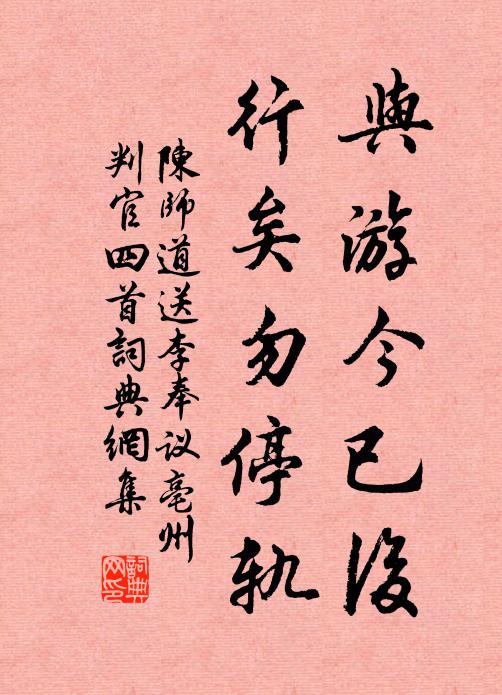 與游今已後
行矣勿停軌
陳師道送李奉议亳州
判官四首詞典網集
詞典网印